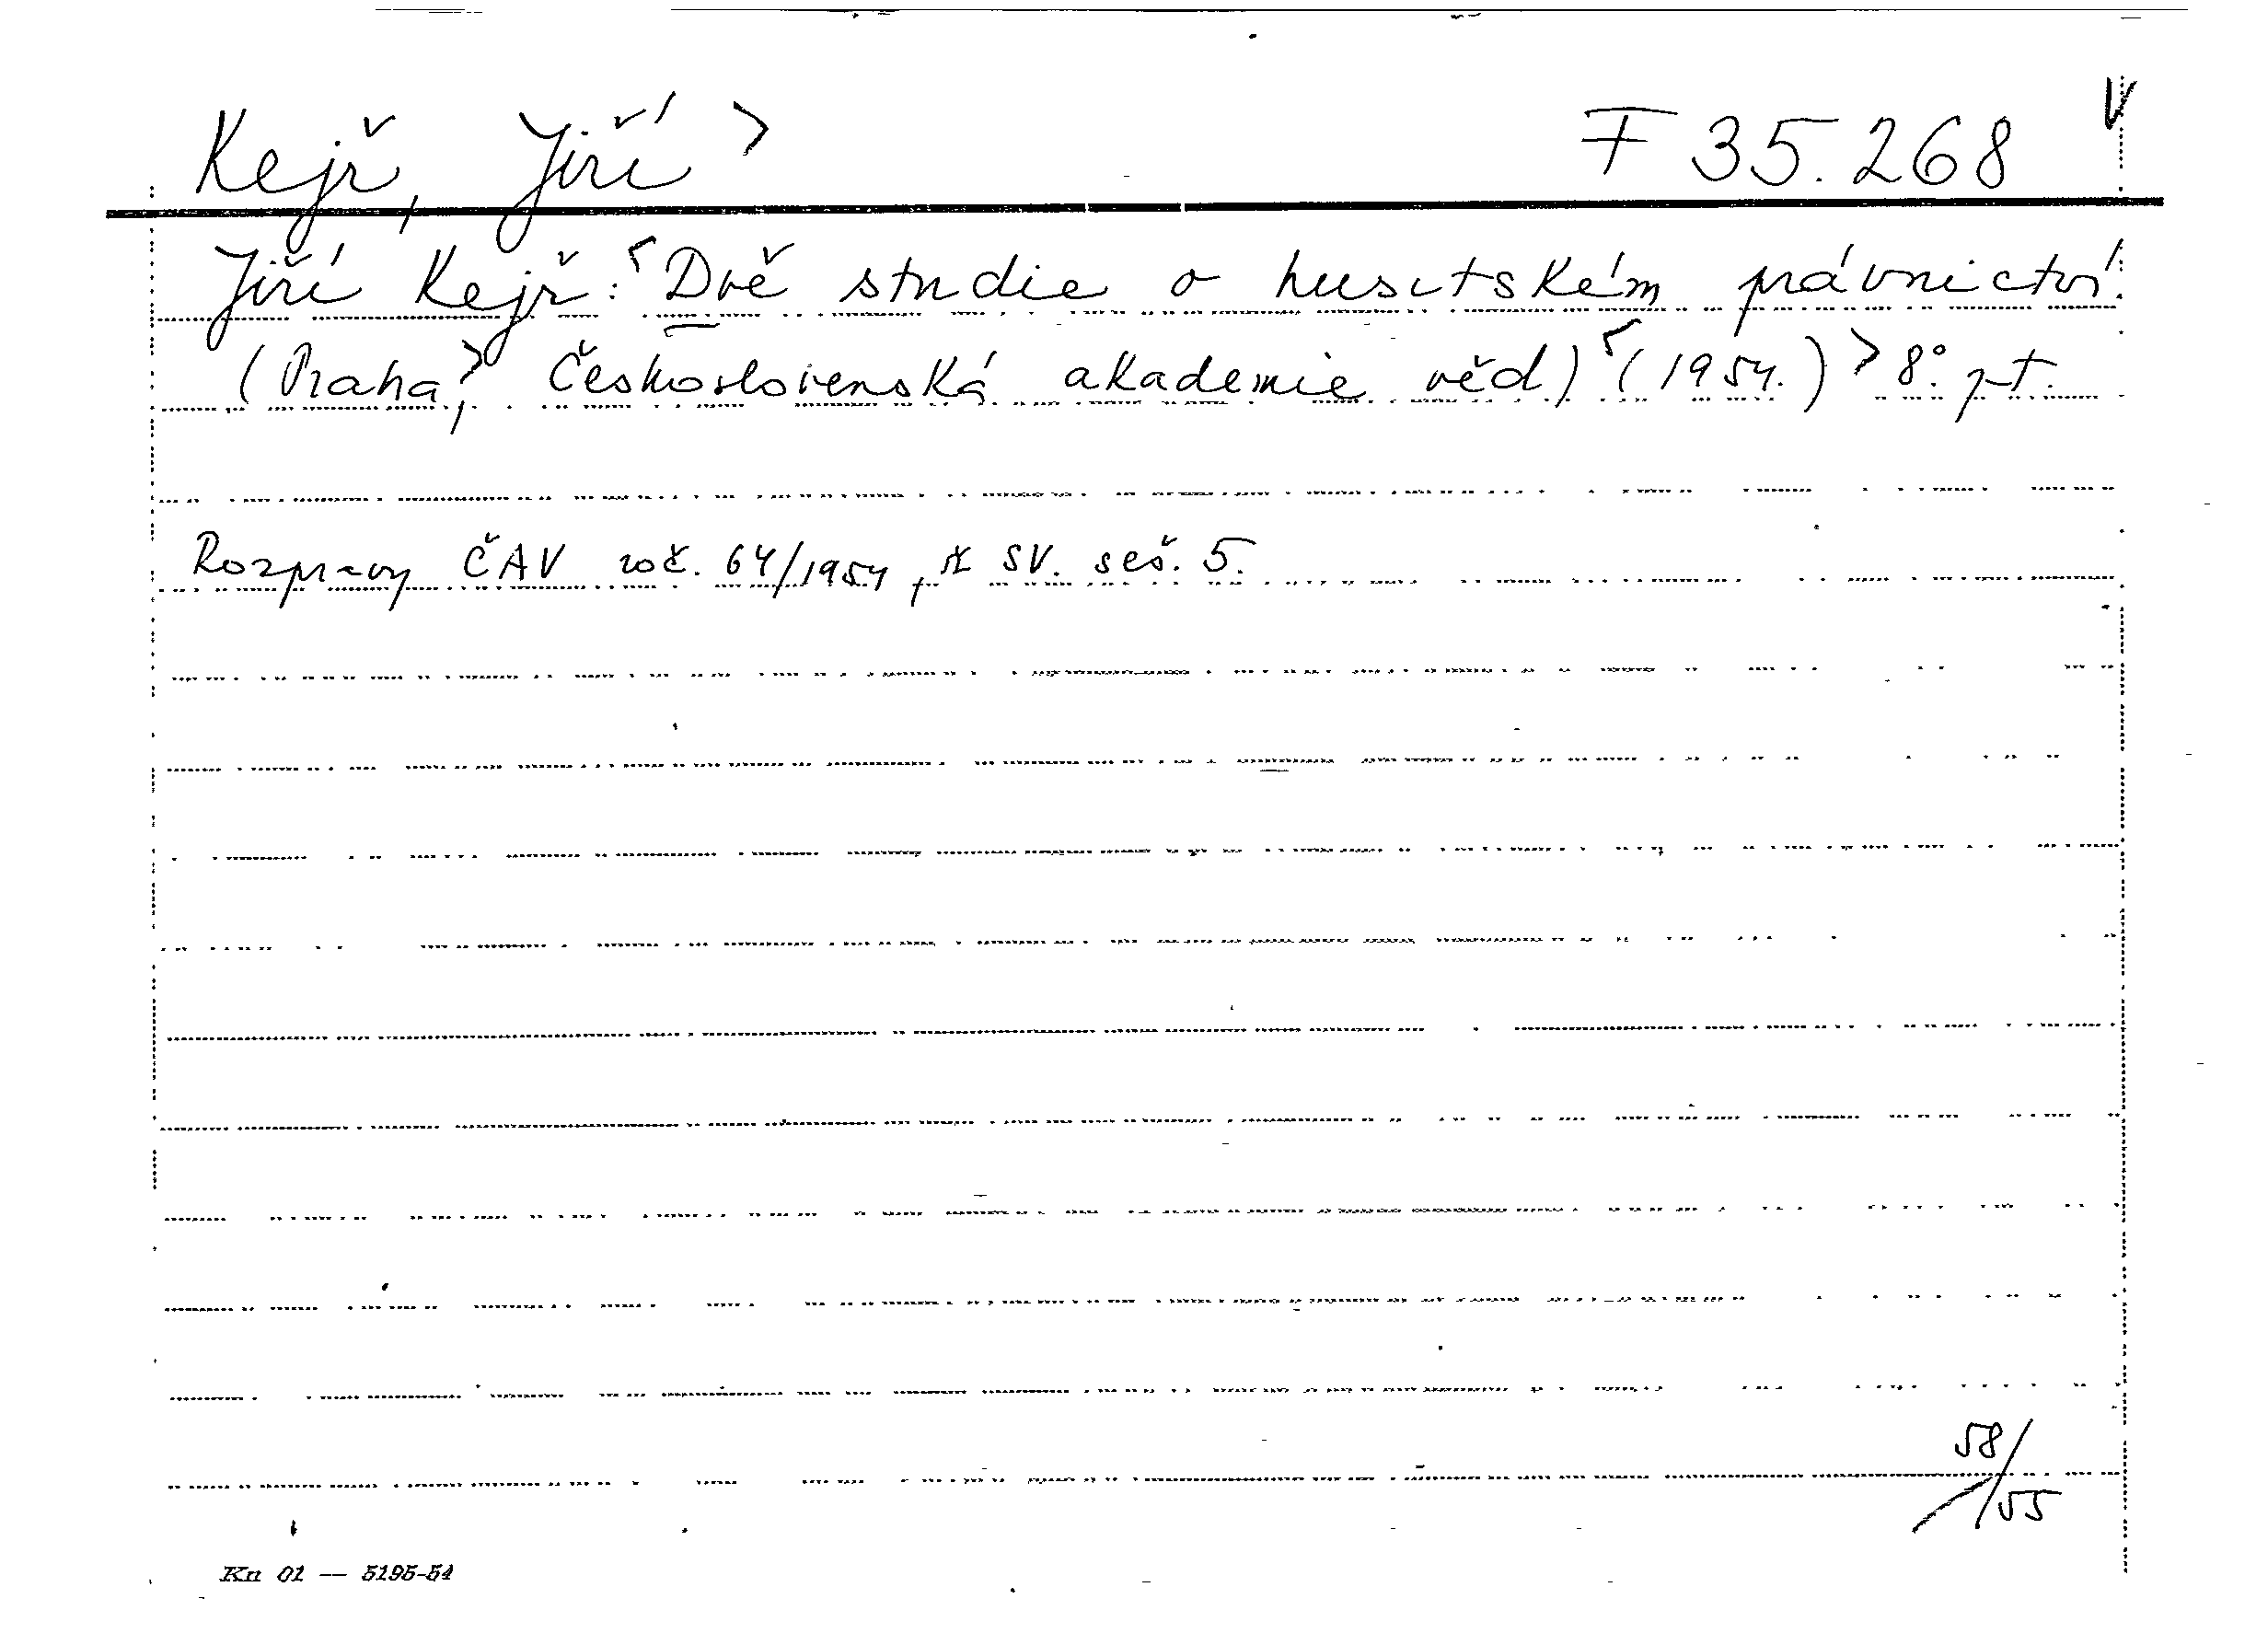 Kejř, Jiří > F 35.268 V
Jiří Kejř: Dvě studie o husitském právnictví.
(Praha, Československá akademie věd) (1954.) > 8° pt.
Rozpravy ČAV roč. 64/1954, ř SV. seš. 5.
58/55
Kn 01 — 5195-54